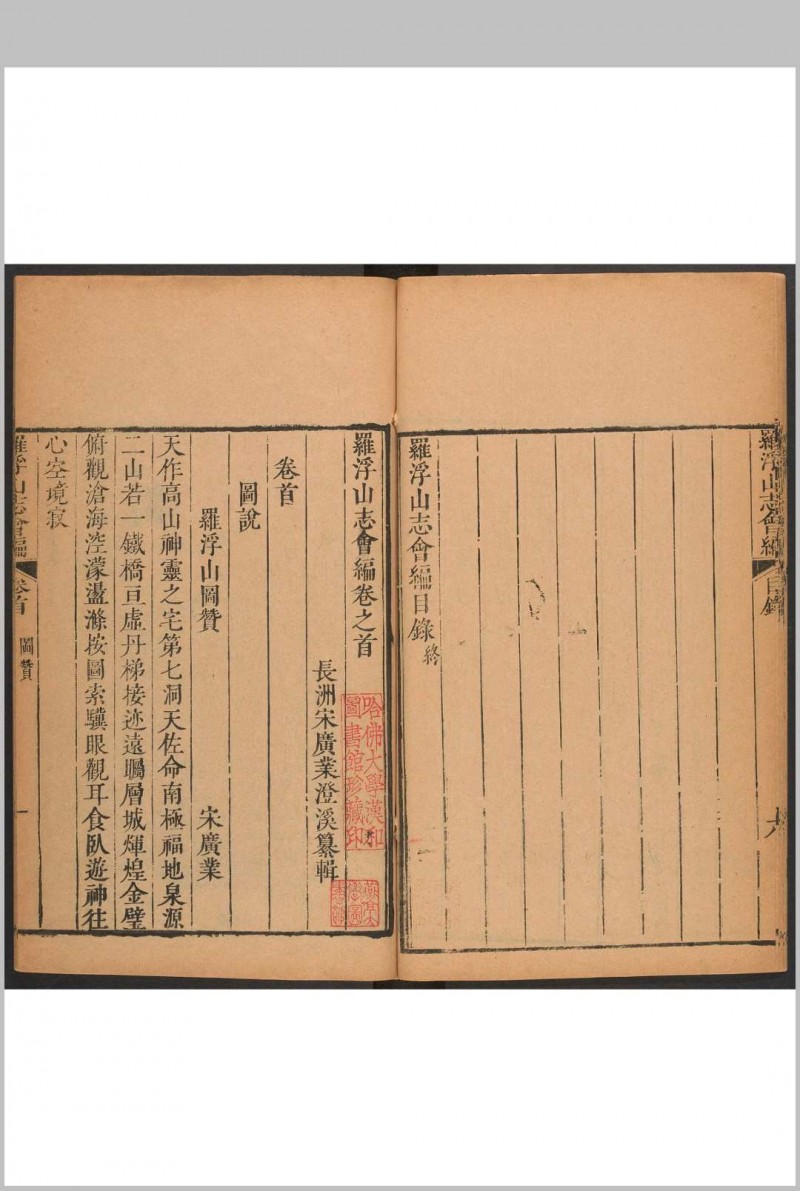 羅浮山志會編 目錄
六
羅浮山志會編目錄終
羅浮山志會編卷之首
長洲宋廣業澄溪纂輯
哈佛大學漢和
圖書館珍藏印
卷首
圖說
羅浮山圖贊 宋廣業
天作高山神靈之宅第七洞天佐命南極福地泉源
二山若一鐵橋亘虛丹梯接迹遠矚層城煇煌金璧
俯觀滄海涳濛盪滌按圖索驥眼觀耳食臥遊神往
心空境寂
羅浮山志會編 卷首 圖贊 一